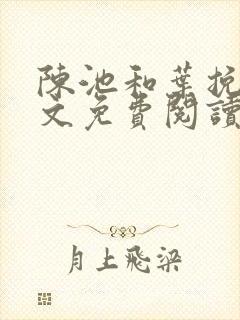 陳池和葉挽
文免費閱讀
月上飛梁